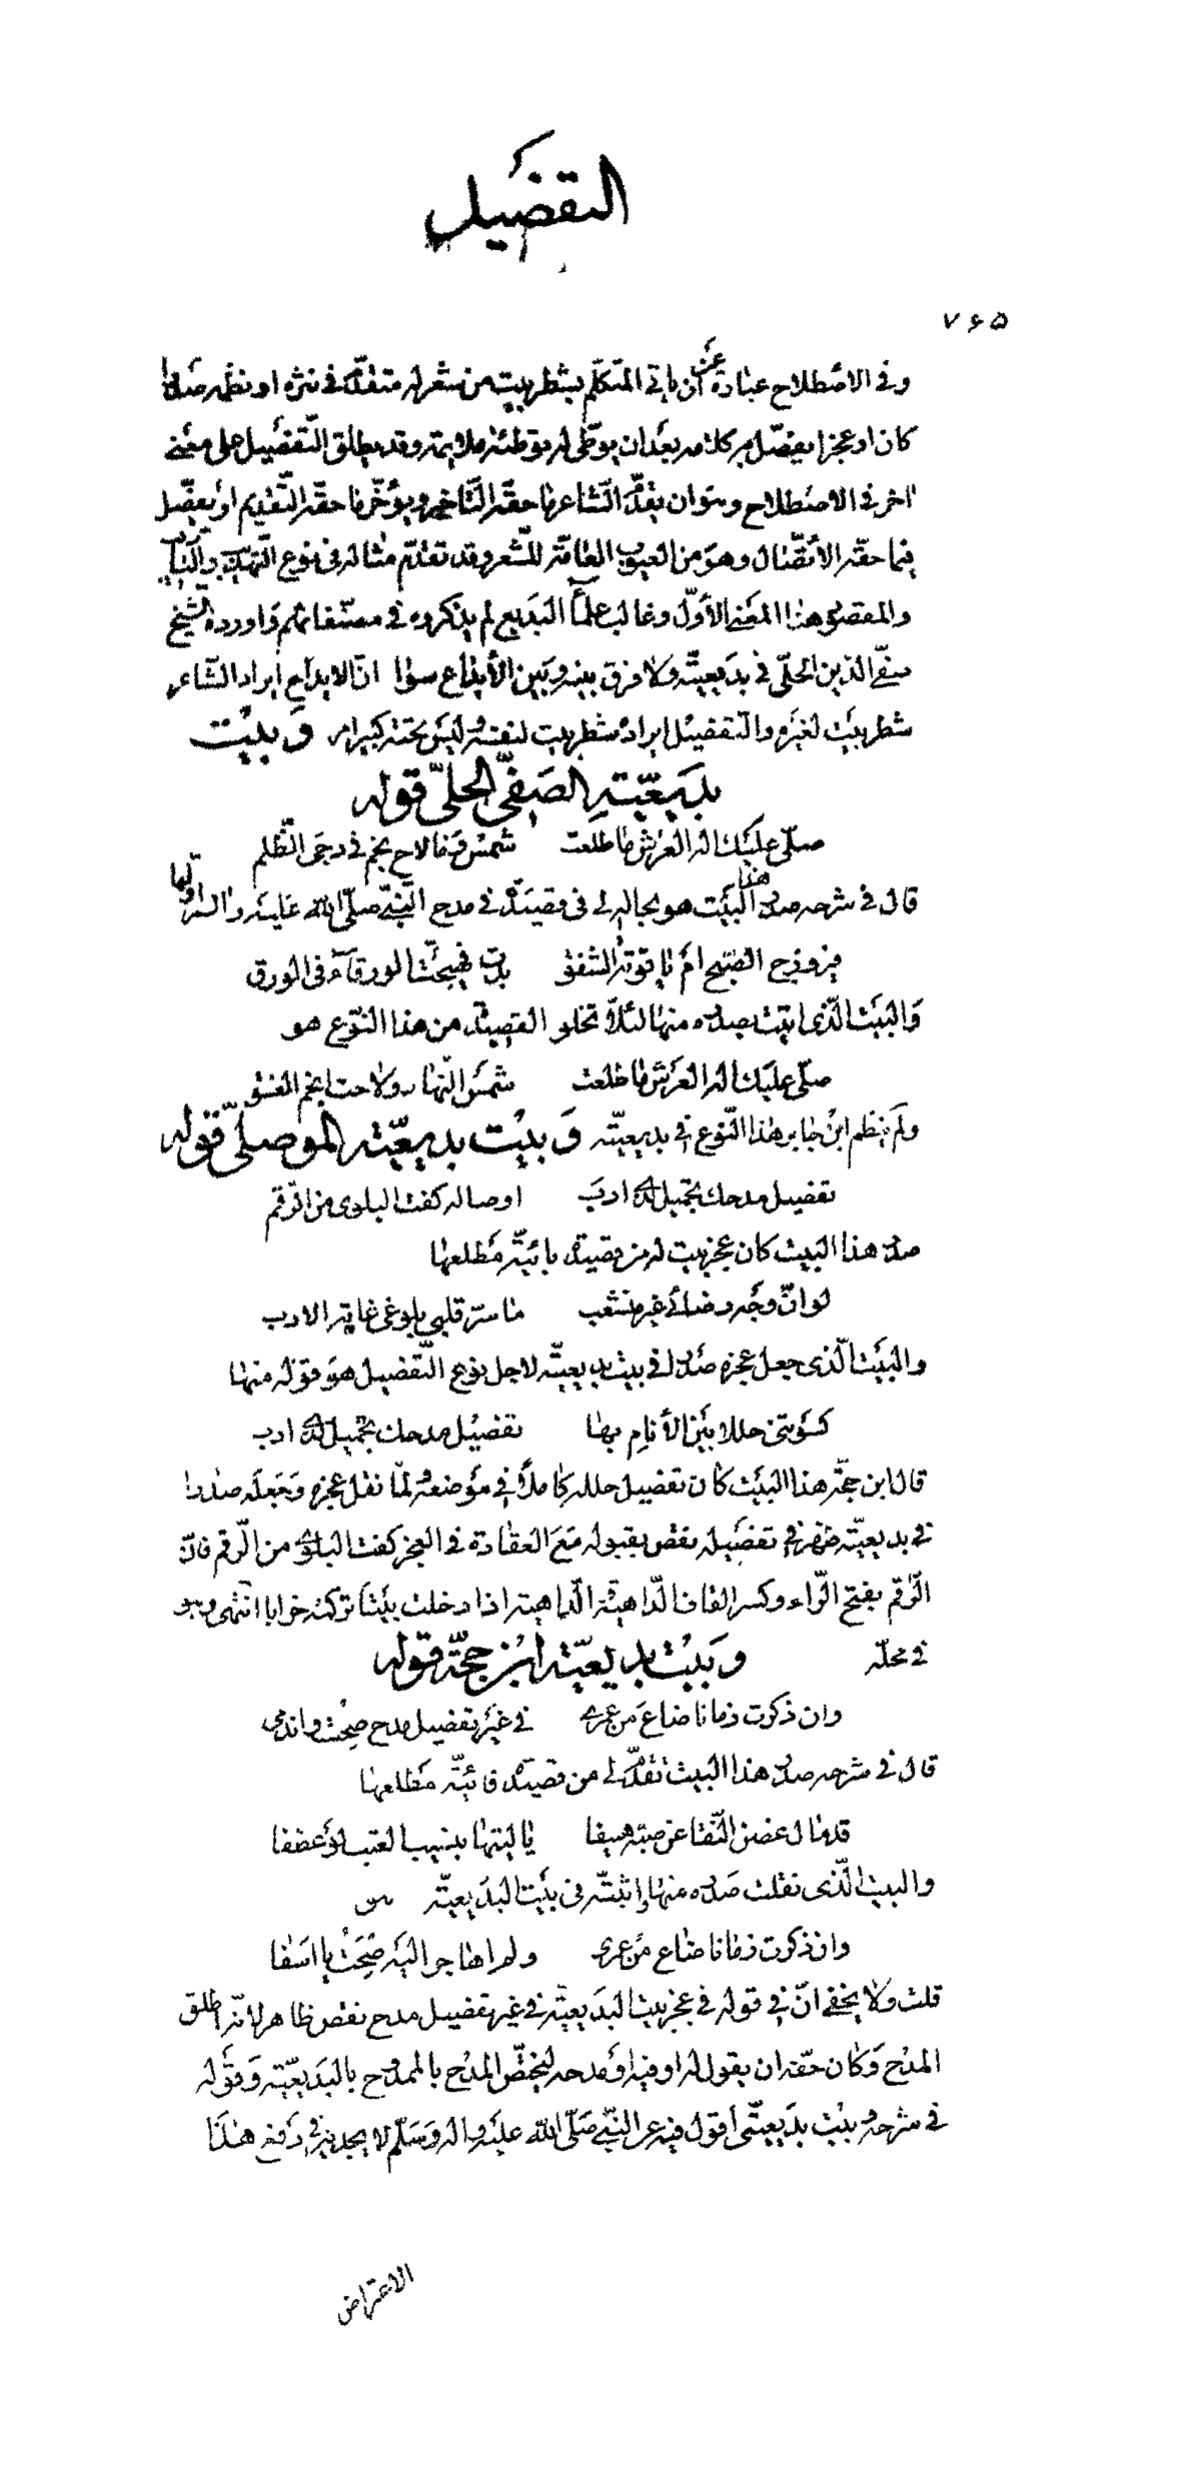 التفضيل
٧۶۵
وفى الاصطلاح عبارة عن أن ياتى المتكلّم بشطر بيت من شعر له متقدّم فى نثره او نظمه صدرا
كان او عجزا يفضّل به كلامه بعد ان يوطّى له توطئة ملائمة وقد يطلق التّفضيل على معنى
اخر فى الاصطلاح وهو ان يقدّم الشّاعر ما حقّه التّاخير ويؤخّر ما حقّه التّقديم او يفصّل
فيما حقّه الاتّصال وهو من العيوب العامّة للشّعر وقد تقدّم مثاله فى نوع التّهذيب والتّاديب
والمقصود هنا المعنى الأوّل وغالب علماء البديع لم يذكروه فى مصنّفاتهم واورده الشّيخ
صفىّ الدّين الحلّى فى بديعيّته ولا فرق بينه وبين الأيداع سوى انّ الايداع ايراد الشّاعر
شطر بيت لغيره والتّفضيل ايراده شطر بيت لنفسه وليس تحته كبير امر وبيت
بديعيّة الصّفىّ الحلّىّ قوله
صلّى عليك اله العرش ما طلعت شمس وما لاح نجم فى دجى الظّلم
قال فى شرحه صدر هذا البيت هو بحاله لى فى قصيدة فى مدح النّبىّ صلّى الله عليه واله اوّلها
فيروزج الصّبح أم ياقوتة الشّفق بدت فهيّجت الورقاء فى الورق
والبيت الّذى اتيت بصدره منها لئلّا تخلو القصيدة من هذا النّوع هو
صلّى عليك اله العرش ما طلعت شمس النّهار ولاحت انجم الغسق
ولم ينظم ابن جابر هذا النّوع فى بديعيّته وبيت بديعيّة الموصلىّ قوله
تفضيل مدحك تجميل لذى ادب اوصاله كفت البلوى من الرّقم
صدر هذا البيت كان عجز بيت له من قصيدة بائيّة مطلعها
لو انّ وجه رضائى غير منتقب ما سرّ قلبى بلوغى غاية الادب
والبيت الّذى جعل عجزه صدرا فى بيت بديعيّته لاجل نوع التّفضيل هو قوله منها
كسوتنى حللا بين الأنام بها تفضيل مدحك تجميل لذى ادب
قال ابن حجّة هذا البيت كان تفضيل حلله كاملا فى موضعه لمّا نقل عجزه وجعله صدرا
فى بديعيّته ظهر فى تفضيله نقص بقبوله مع العقادة فى العجز كفت البلوى من الرّقم فانّ
الرّقم بفتح الرّاء وكسر القاف الدّاهية الّتى اذا دخلت بيتا تركته خرابا انتهى وهو
فى محلّه وبيت بديعيّة ابن حجّة قوله
وان ذكرت زمانا ضاع من عمرى فى غير تفضيل مدح صحت واندمى
قال فى شرحه صدر هذا البيت تقدّم لى من قصيدة فائيّة مطلعها
قد مال غصن النّقا عن صبّه هيفا يا ليته بنسيم العتب لو عطفا
والبيت الّذى نقلت صدره منها واثبتّه فى بيت البديعيّة هو
وان ذكرت زمانا ضاع من عمرى ولم اهاجر اليه صحت يا اسفا
قلت ولا يخفى انّ فى قوله فى عجز بيت البديعيّة فى غير تفضيل مدح نقص ظاهر لانّه اطلق
المدح وكان حقّه ان يقول له او فيه او مدحه ليختصّ المدح بالممدوح بالبديعيّة وقوله
فى شرحه وبيت بديعيّتى أقول فيه عن النّبىّ صلّى الله عليه واله وسلّم لا يجديه فى دفع هذا
الاعتراض